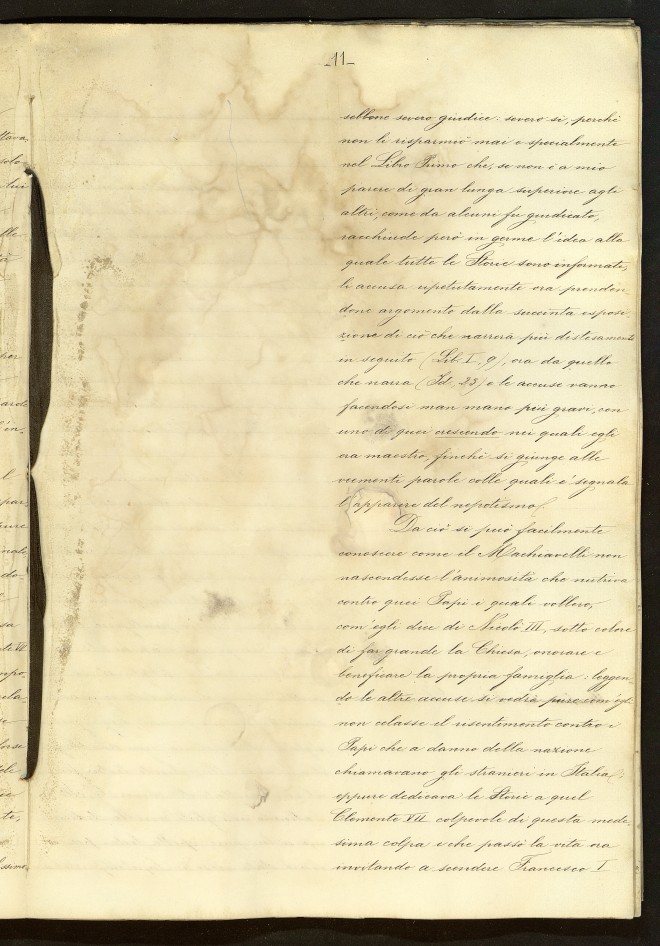 11
sebbene severo giudice: severo si, perchè
non li risparmiò mai e specialmente
nel Libro Primo che, se non è a mio
parere di gran lunga superiore agli
altri, come da alcuni fu giudicato,
racchiude però in germe l'idea alla
quale tutte le Storie sono informate,
li accusa ripetutamente ora prenden-
done argomento dalla succinta esposi-
zione di ciò che narrerà più distesamente
in seguito (Lib. I, 9), ora da quello
che narra (Id, 23) e le accuse vanno
facendosi man mano più gravi, con
uno di quei crescendo nei quali egli
era maestro, finchè si giunge alle
veementi parole colle quali è segnala
l'apparire del nepotismo.
Da ciò si può facilmente
conoscere come il Machiavelli non
nascondesse l'animosità che nutriva
contro quei Papi i quali vollero,
com'egli dice di Nicolò III, sotto colore
di far grande la Chiesa, onorare e
beneficare la propria famiglia: leggen-
do le altre accuse si vedrà pure com'egli
non celasse il risentimento contro i
Papi che a danno della nazione
chiamavano gli stranieri in Italia;
eppure dedicava le Storie a quel
Clemente VII colpevole di questa mede-
sima colpa e che passò la vita ora
invitando a scendere Francesco I